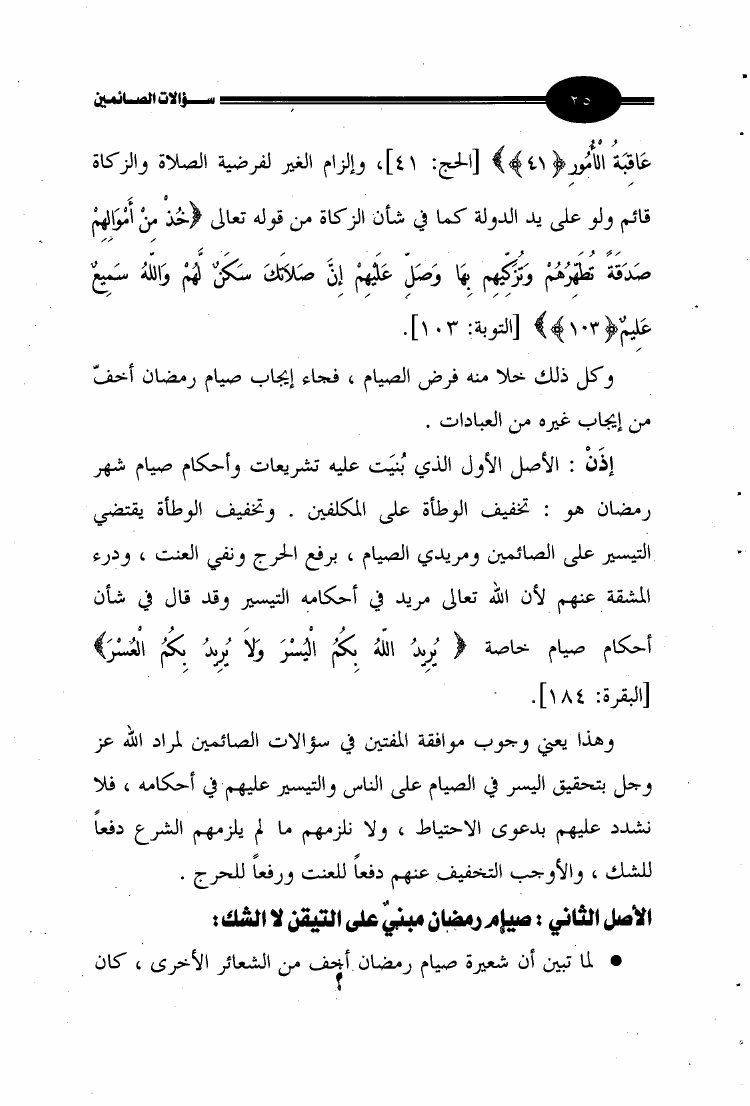 سؤالات الصائمين ٢٥
عَاقِبَةُ الْأُمُورِ ﴿٤١﴾﴾ [الحج: ٤١]، وإلزام الغير لفرضية الصلاة والزكاة
قائم ولو على يد الدولة كما في شأن الزكاة من قوله تعالى ﴿خُذْ مِنْ أَمْوَالِهِمْ
صَدَقَةً تُطَهِّرُهُمْ وَتُزَكِّيهِم بِهَا وَصَلِّ عَلَيْهِمْ إِنَّ صَلَاتَكَ سَكَنٌ لَّهُمْ وَاللَّهُ سَمِيعٌ
عَلِيمٌ ﴿١٠٣﴾﴾ [التوبة: ١٠٣].
وكل ذلك خلا منه فرض الصيام ، فجاء إيجاب صيام رمضان أخفّ
من إيجاب غيره من العبادات .
إذَنْ : الأصل الأول الذي بُنيَت عليه تشريعات وأحكام صيام شهر
رمضان هو : تخفيف الوطأة على المكلفين . وتخفيف الوطأة يقتضي
التيسير على الصائمين ومريدي الصيام ، برفع الحرج ونفي العنت ، ودرء
المشقة عنهم لأن الله تعالى مريد في أحكامه التيسير وقد قال في شأن
أحكام صيام خاصة ﴿ يُرِيدُ اللَّهُ بِكُمُ الْيُسْرَ وَلَا يُرِيدُ بِكُمُ الْعُسْرَ﴾
[البقرة: ١٨٤].
وهذا يعني وجوب موافقة المفتين في سؤالات الصائمين لمراد الله عز
وجل بتحقيق اليسر في الصيام على الناس والتيسير عليهم في أحكامه ، فلا
نشدد عليهم بدعوى الاحتياط ، ولا نلزمهم ما لم يلزمهم الشرع دفعاً
للشك ، والأوجب التخفيف عنهم دفعاً للعنت ورفعاً للحرج .
الأصل الثاني : صيام رمضان مبنيٌ على التيقن لا الشك :
● لما تبين أن شعيرة صيام رمضان أخف من الشعائر الأخرى ، كان